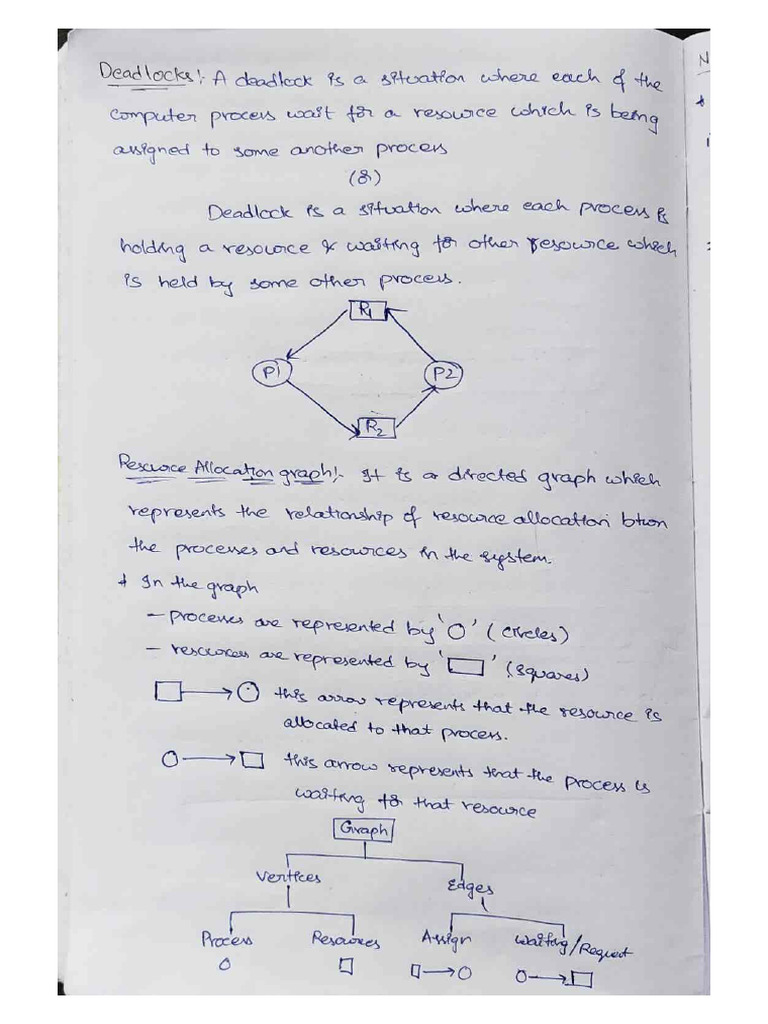 Deadlocks:- A deadlock is a situation where each of the
computer process wait for a resource which is being
assigned to some another process
(or)
Deadlock is a situation where each process is
holding a resource & waiting for other resource which
is held by some other process.
R1
P1
P2
R2
Resource Allocation graph:- It is a directed graph which
represents the relationship of resource allocation btwn
the processes and resources in the system.
* In the graph
- processes are represented by 'O' (circles)
- resources are represented by '□' (squares)
□ → O this arrow represents that the resource is
allocated to that process.
O → □ this arrow represents that the process is
waiting for that resource
Graph
Vertices
Edges
Process
Resources
Assign
Waiting/Request
O
□
□ → O
O → □
N
*
i